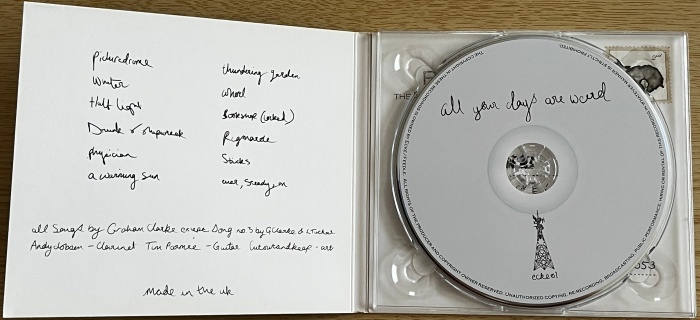 Picturedrome
Winter
Half Light
Drunk & Shipwreck
physician
a warning sun
thundering garden
whorl
Bookshop (locked)
Rigmarole
Sticks
over, Steady, on
all Songs by Graham Clarke except Dong no 3 by G Clarke &
Andy Jobson - Clarinet Tim - Guitar cutoutandkeep - art
made in the uk
all your days are weird
ecke01
ALL RIGHTS OF THE PRODUCER AND COPYRIGHT OWNER RESERVED. UNAUTHORIZED COPYING, RE-RECORDING, BROADCASTING, PUBLIC PERFORMANCE, HIRING OR RENTAL OF THIS RECORDING IN ANY MANNER WHATSOEVER IS STRICTLY PROHIBITED.
THE COPYRIGHT IN THESE RECORDINGS IS OWNED BY
THE
053